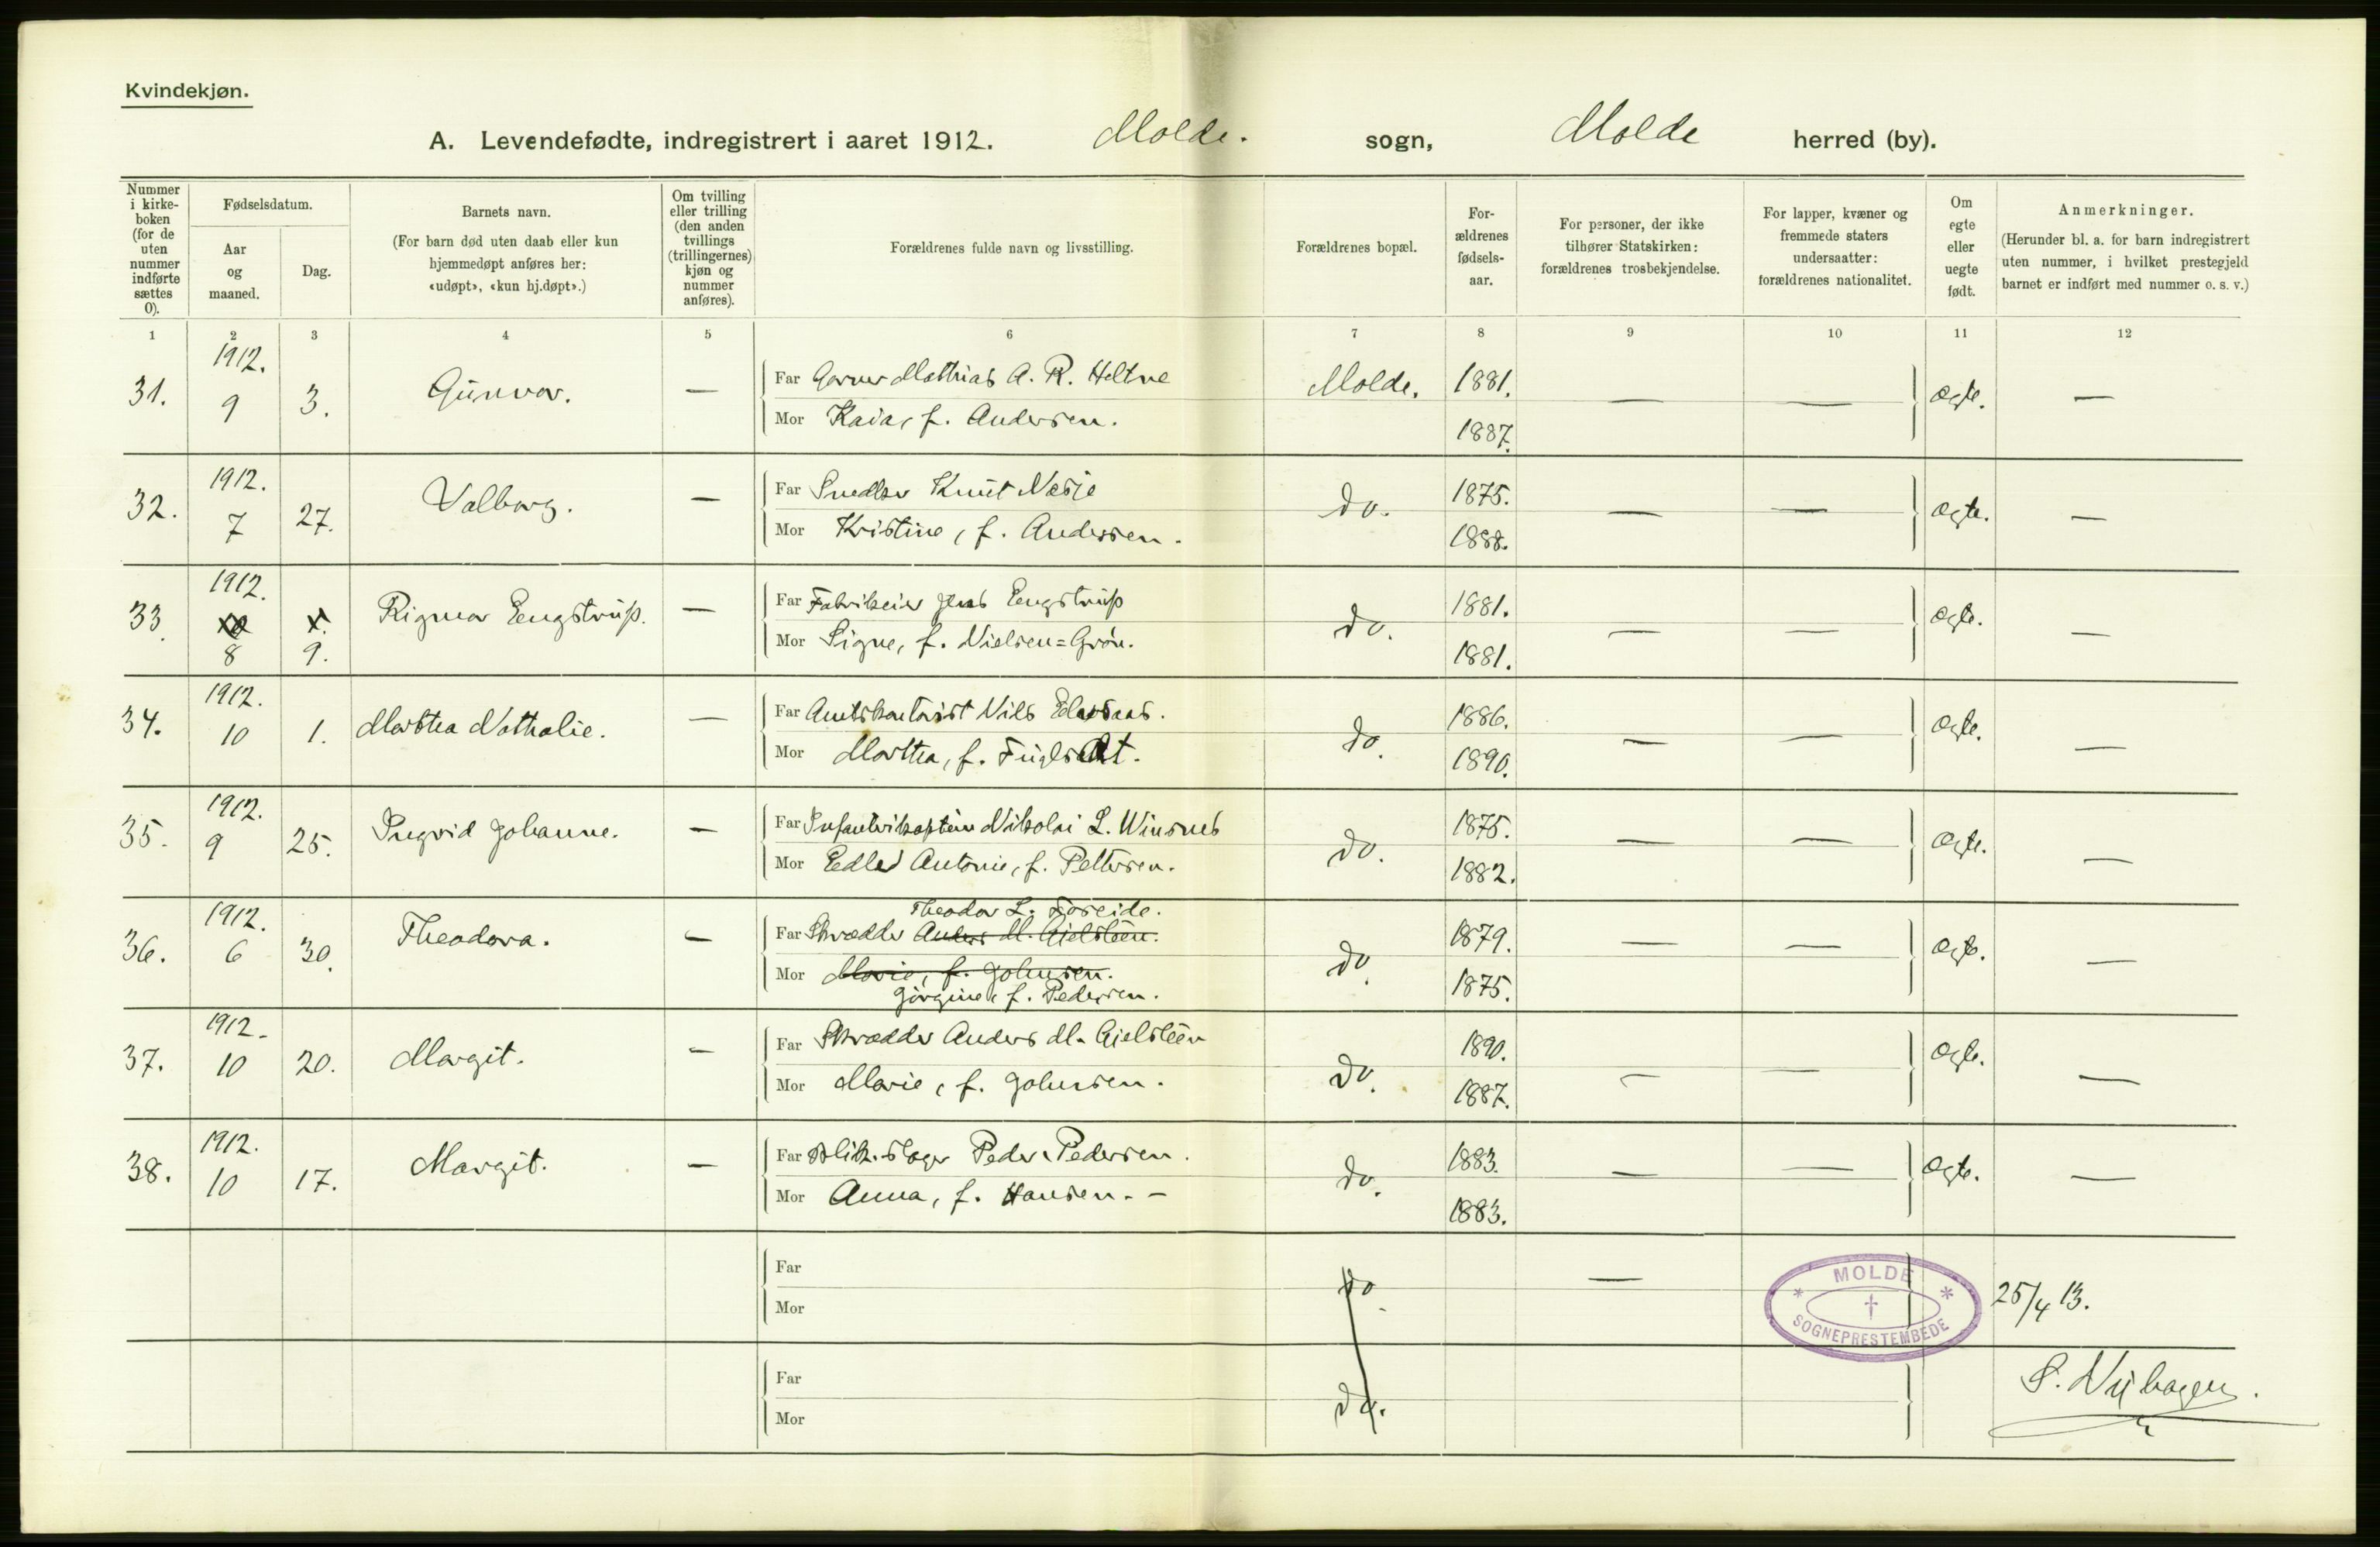 Kvindekjøn.
A. Levendefødte, indregistrert i aaret 1912. Molde. sogn, Molde herred (by).
Nummer i kirke-boken (for de uten nummer indførte sættes 0).
Fødselsdatum.
Aar og maaned.
Dag.
Barnets navn.
(For barn død uten daab eller kun hjemmedøpt anføres her: «udøpt», «kun hj.døpt».)
Om tvilling eller trilling (den anden tvillings (trillingernes) kjøn og nummer anføres).
Forældrenes fulde navn og livsstilling.
Forældrenes bopæl.
For-ældrenes fødsels-aar.
For personer, der ikke tilhører Statskirken: forældrenes trosbekjendelse.
For lapper, kvæner og fremmede staters undersaatter: forældrenes nationalitet.
Om egte eller uegte født.
Anmerkninger.
(Herunder bl. a. for barn indregistrert uten nummer, i hvilket prestegjeld barnet er indført med nummer o. s. v.)
1 2 3 4 5 6 7 8 9 10 11 12
1912.
31. 9 3. Gunvor. — Far Garver Mathias A. R. Heltne Molde. 1881. — — Ægte. —
Mor Kaia, f. Andersen. 1887.
1912.
32. 7 27. Valborg. — Far Snedker Knut Næsje do. 1875. — — Ægte. —
Mor Kristine, f. Andersen. 1888.
1912.
33. Rigmor Engstrup. — Far Fabrikeier Jens Engstrup do. 1881. — — Ægte. —
8 9. Mor Signe, f. Nielsen=Grøn. 1881.
1912.
34. 10 1. Marthea Nathalie. — Far Amtskontorist Nils do. 1886. — — Ægte. —
Mor Marthea, f. 1890.
1912.
35. 9 25. Ingvid Johanne. — Far Infanterikaptein Nikolai L. Winsnes do. 1875. — — Ægte. —
Mor Antonie, f. Pettersen. 1882.
1912. Theodor L. Foseide.
36. 6 30. Theodora. — Far Skrædder Anders M. Gjelsteen. do. 1879. — — Ægte. —
Mor Marie, f. Johnsen.
Jørgine, f. Pedersen. 1875.
1912.
37. 10 20. Margit. — Far Skrædder Anders M. Gjelsteen do. 1890. — — Ægte. —
Mor Marie, f. Johnsen. 1887.
1912.
38. 10 17. Margit. — Far Blik.slager Peder Pedersen. do. 1883. — — Ægte. —
Mor Anna, f. Hansen. — 1883.
Far do. —
Mor
MOLDE
SOGNEPRESTEMBEDE
25/4 13.
Far do.
Mor